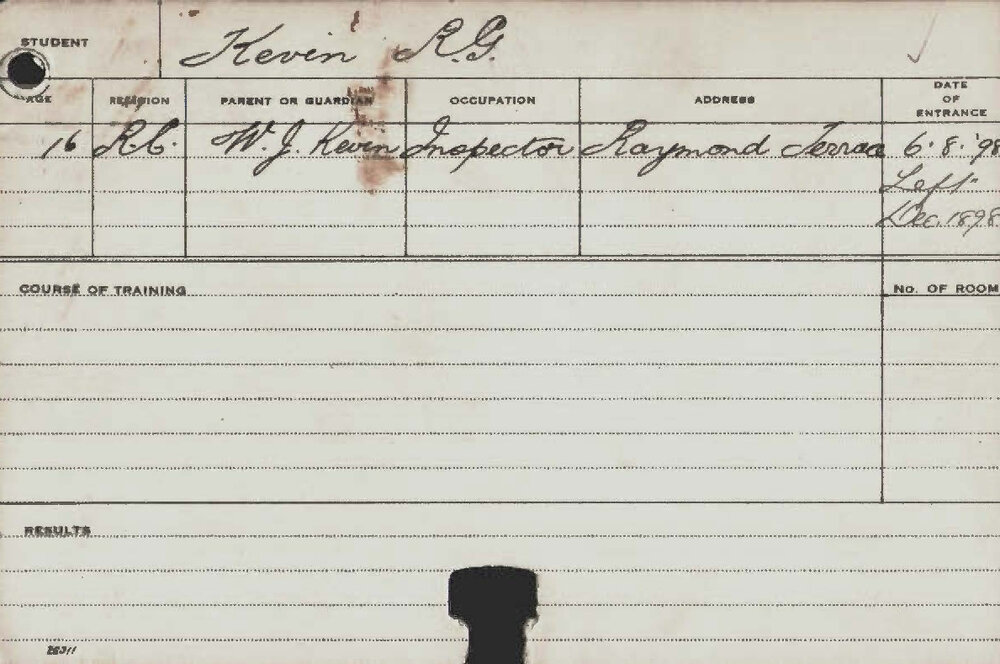 STUDENT Kevin R.G.
AGE RELIGION PARENT OR GUARDIAN OCCUPATION ADDRESS DATE OF ENTRANCE
16 R.C. W. J. Kevin Inspector Raymond Terrace 6. 8. '98
Left
Dec. 1898
COURSE OF TRAINING No. OF ROOM
RESULTS